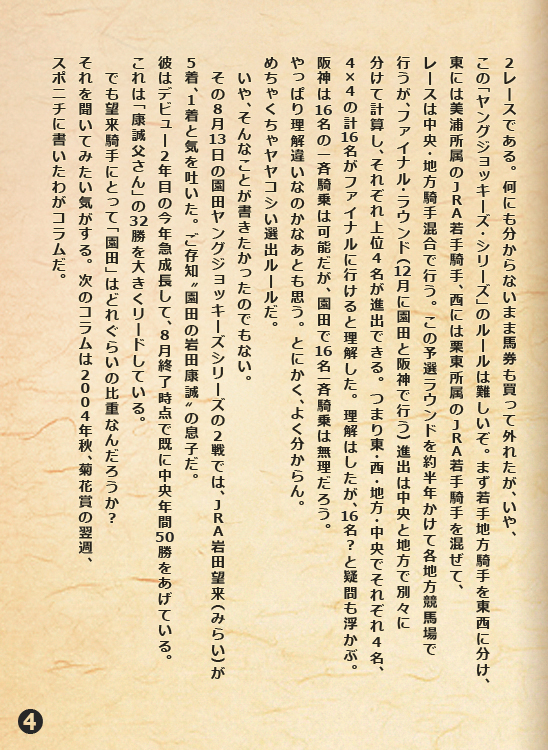 2レースである。何にも分からないまま馬券も買って外れたが、いや、
この「ヤングジョッキーズ・シリーズ」のルールは難しいぞ。まず若手地方騎手を東西に分け、
東には美浦所属のJRA若手騎手、西には栗東所属のJRA若手騎手を混ぜて、
レースは中央・地方騎手混合で行う。この予選ラウンドを約半年かけて各地方競馬場で
行うが、ファイナル・ラウンド(12月に園田と阪神で行う)進出は中央と地方で別々に
分けて計算し、それぞれ上位4名が進出できる。つまり東・西・地方・中央でそれぞれ4名、
4×4の計16名がファイナルに行けると理解した。理解はしたが、16名?と疑問も浮かぶ。
阪神は16名の一斉騎乗は可能だが、園田で16名一斉騎乗は無理だろう。
やっぱり理解違いなのかなあとも思う。とにかく、よく分からん。
めちゃくちゃヤヤコシい選出ルールだ。
いや、そんなことが書きたかったのでもない。
その8月13日の園田ヤングジョッキーズシリーズの2戦では、JRA岩田望来(みらい)が
5着、1着と気を吐いた。ご存知〝園田の岩田康誠〟の息子だ。
彼はデビュー2年目の今年急成長して、8月終了時点で既に中央年間50勝をあげている。
これは「康誠父さん」の32勝を大きくリードしている。
でも望来騎手にとって「園田」はどれぐらいの比重なんだろうか?
それを聞いてみたい気がする。次のコラムは2004年秋、菊花賞の翌週、
スポニチに書いたわがコラムだ。
4